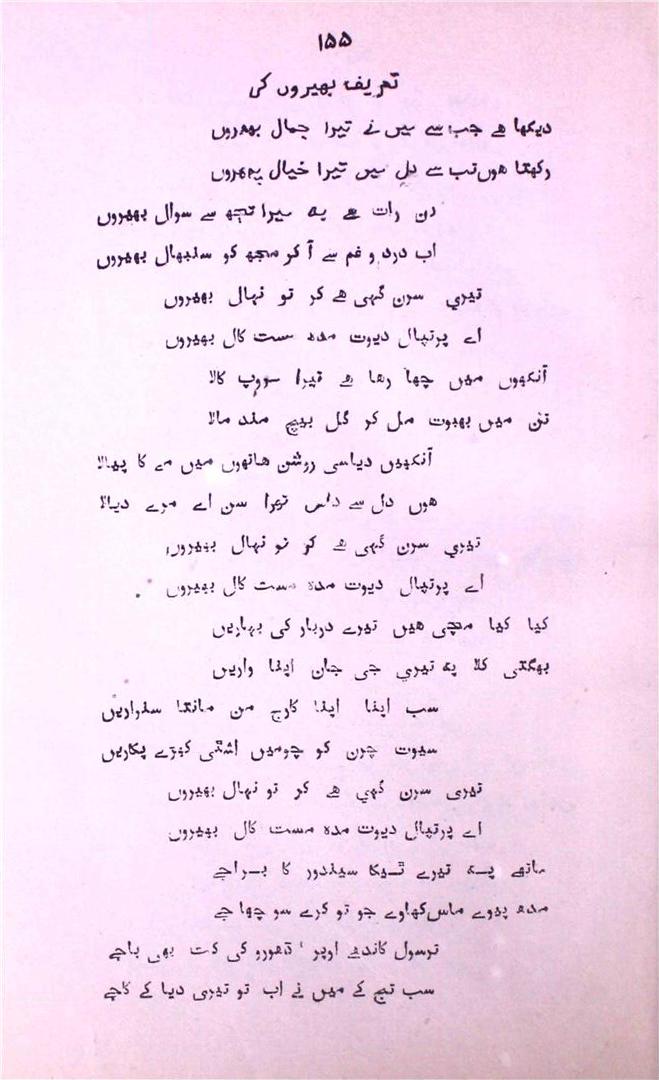 ۱۵۵
تعریف بھیروں کی
دیکھا ھے جب سے میں نے تیرا جمال بھیروں
رکھتا ھوں تب سے دل میں تیرا خیال بھیروں
دن رات ھے یہ میرا تجھ سے سوال بھیروں
اب درد و غم سے آ کر مجھ کو سنبھال بھیروں
تیری سرن گہی ھے کر تو نہال بھیروں
اے پرتپال دیوت مدہ مست کال بھیروں
آنکھوں میں چھا رھا ھے تیرا سروپ کالا
تن میں بھبوت مل کر گل بیچ منڈ مالا
آنکھیں دیاسی روشن ھاتھوں میں مے کا پیالا
ھوں دل سے داس تیرا سن اے مرے دیالا
تیری سرن گہی ھے کر تو نہال بھیروں
اے پرتپال دیوت مدہ مست کال بھیروں
کیا کیا مچی ھیں تیرے دربار کی بہاریں
بھگتی کلا پہ تیری جی جان اپنا واریں
سب اپنا اپنا کارج من مانتا سنواریں
سیوت چرن کو چومیں اشٹی کھڑے پکاریں
تیری سرن گہی ھے کر تو نہال بھیروں
اے پرتپال دیوت مدہ مست کال بھیروں
ماتھے پہ تیرے ٹیکا سیندور کا براجے
مدھ پیوے ماس کھاوے جو تو کرے سو چھاجے
ترسول کاندھے اوپر ' ڈھورو کی گت بھی باجے
سب تج کے میں نے اب تو تیری دیا کے کاجے